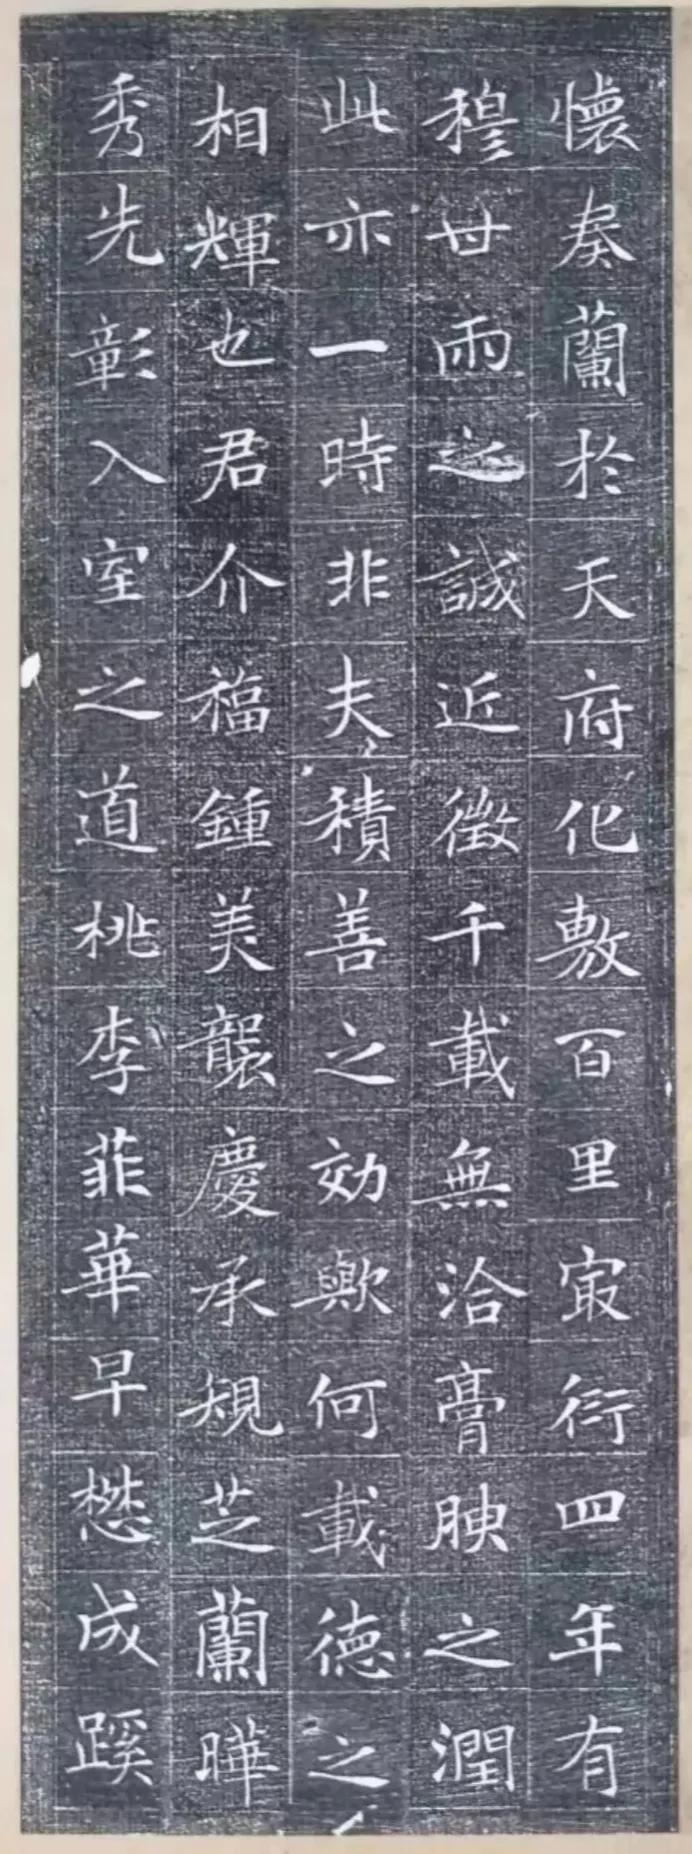 懷奏蘭於天府化敷百里㝡衍四年有
穆世雨之誠近徵千載無洽膏腴之潤
此亦一時非夫積善之効歟何載德之
相輝也君介福鍾美襲慶承規芝蘭曄
秀先彰入室之道桃李菲華早懋成蹊